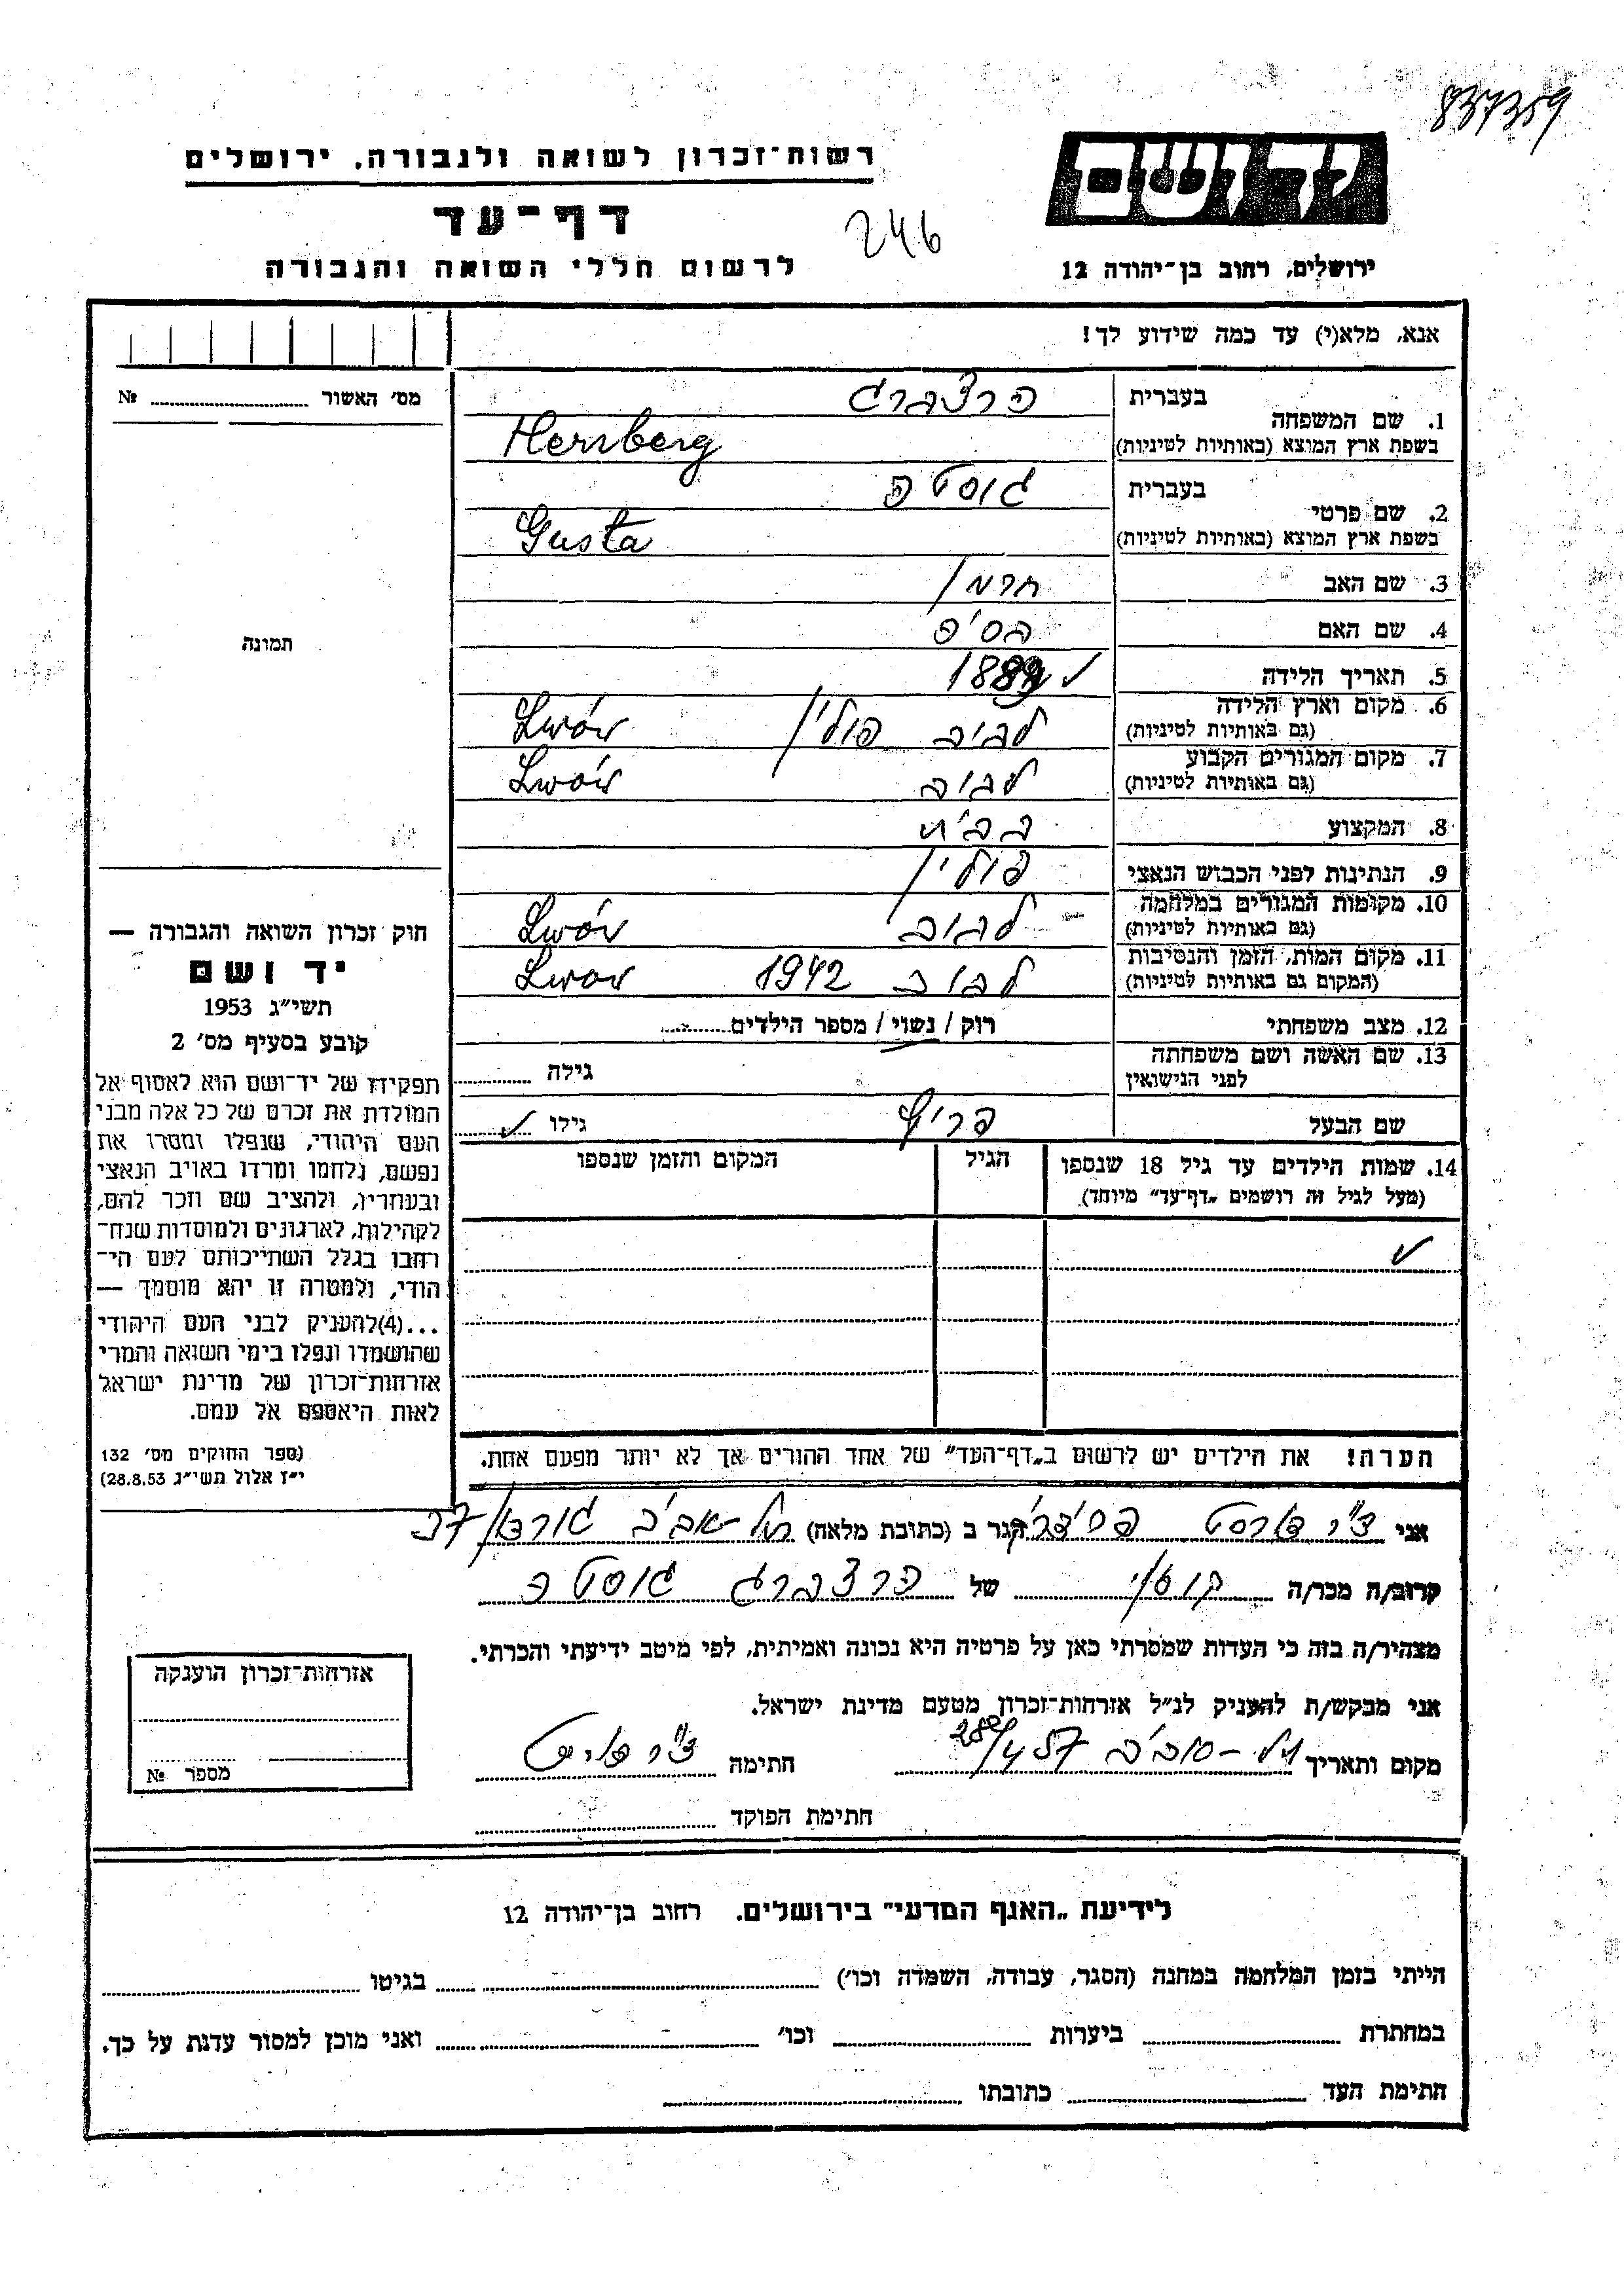 837359
רשות־זכרון לשואה ולגבורה, ירושלים
דף־עד
לרשום חללי השואה והגבורה
246
יד ושם
ירושלים, רחוב בן־יהודה 12
אנא, מלא(י) עד כמה שידוע לך!
מס׳ האשור № 
1. שם המשפחה
בעברית הרצברג
בשפת ארץ המוצא (באותיות לטיניות) Herzberg
2. שם פרטי
בעברית גוסטה
בשפת ארץ המוצא (באותיות לטיניות) Gusta
3. שם האב
4. שם האם
5. תאריך הלידה
6. מקום וארץ הלידה (גם באותיות לטיניות) לבוב פולין Lwów
7. מקום המגורים הקבוע (גם באותיות לטיניות) לבוב Lwów
8. המקצוע
9. הנתינות לפני הכבוש הנאצי פולין
10. מקומות המגורים במלחמה (גם באותיות לטיניות) לבוב Lwów
11. מקום המות, הזמן והנסיבות (המקום גם באותיות לטיניות) לבוב 1942 Lwow
12. מצב משפחתי רוק / נשוי / מספר הילדים
13. שם האשה ושם משפחתה לפני הנישואין גילה
שם הבעל גילו
14. שמות הילדים עד גיל 18 שנספו (מעל לגיל זה רושמים „דף־עד״ מיוחד).
הגיל
המקום והזמן שנספו
תמונה
חוק זכרון השואה והגבורה —
יד ושם
תשי״ג 1953
קובע בסעיף מס׳ 2
תפקידו של יד־ושם הוא לאסוף אל
המולדת את זכרם של כל אלה מבני
העם היהודי, שנפלו ומסרו את
נפשם, נלחמו ומרדו באויב הנאצי
ובעוזריו, ולהציב שם וזכר להם,
לקהילות, לארגונים ולמוסדות שנח־
רבו בגלל השתייכותם לעם הי־
הודי, ולמטרה זו יהא מוסמך —
...(4)להעניק לבני העם היהודי
שהושמדו ונפלו בימי השואה והמרי
אזרחות־זכרון של מדינת ישראל
לאות היאספם אל עמם.
(ספר החוקים מס׳ 132
י״ז אלול תשי״ג 28.8.53)
הערה! את הילדים יש לרשום ב„דף־העד״ של אחד ההורים אך לא יותר מפעם אחת.
אני הגר ב (כתובת מלאה) תל־אביב גורדון
קרוב/ה מכר/ה של הרצברג גוסטה
מצהיר/ה בזה כי העדות שמסרתי כאן על פרטיה היא נכונה ואמיתית, לפי מיטב ידיעתי והכרתי.
אני מבקש/ת להעניק לנ״ל אזרחות־זכרון מטעם מדינת ישראל.
מקום ותאריך תל-אביב חתימה
חתימת הפוקד
אזרחות־זכרון הוענקה
מספר №
לידיעת „האגף המדעי״ בירושלים. רחוב בן־יהודה 12
הייתי בזמן המלחמה במחנה (הסגר, עבודה, השמדה וכו׳) בגיטו
במחתרת ביערות וכו׳ ואני מוכן למסור עדות על כך.
חתימת העד כתובתו